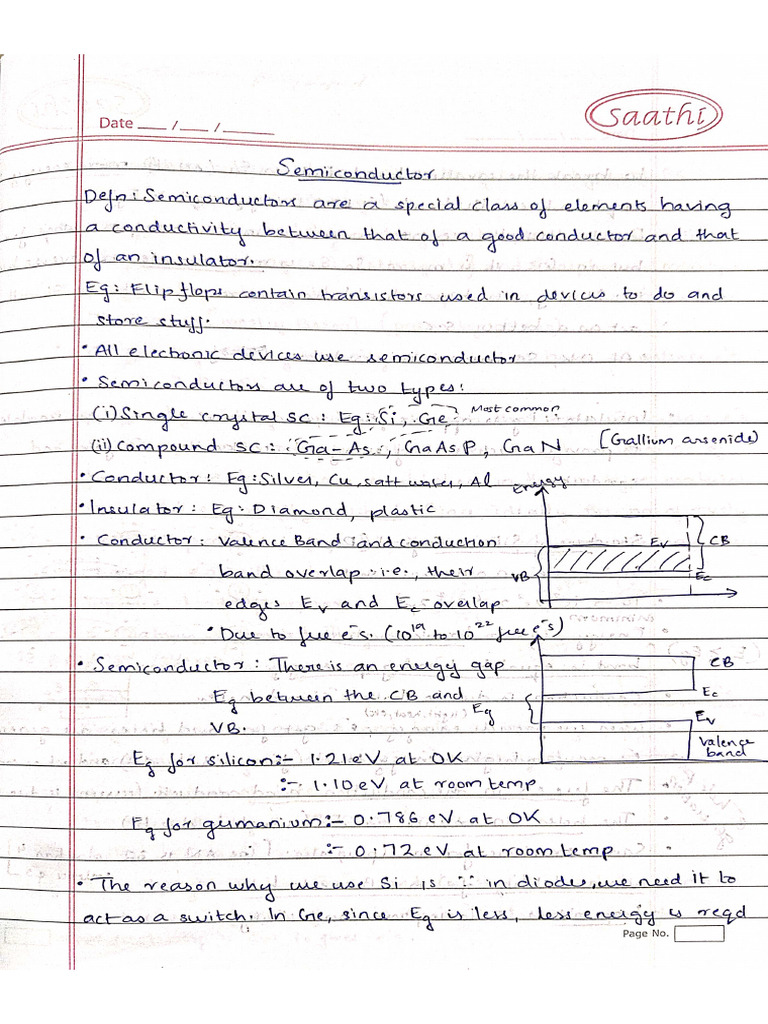 Saathi
Date ___ / ___ / _____
Semiconductor
Defn: Semiconductors are a special class of elements having
a conductivity between that of a good conductor and that
of an insulator.
Eg: Flip flops contain transistors used in devices to do and
store stuff.
• All electronic devices use semiconductor
• Semiconductors are of two types:
(i) Single crystal SC: Eg: Si, Ge Most common
(ii) Compound SC: Ga-As, GaAsP, GaN [Gallium arsenide)
• Conductor: Eg: Silver, Cu, salt water, Al
• Insulator: Eg: Diamond, plastic
• Conductor: Valence Band and conduction
band overlap i.e., their
edges Ev and Ec overlap
• Due to free e⁻s. (10¹⁹ to 10²² free e⁻s)
Energy
Ev
CB
VB
Ec
• Semiconductor: There is an energy gap
Eg between the CB and
VB.
CB
Ec
Eg
Ev
Valence
band
Eg for silicon:- 1.21eV at 0K
:- 1.10eV at room temp
Eg for germanium:- 0.786 eV at 0K
:- 0.72 eV at room temp
• The reason why we use Si is ∵ in diodes, we need it to
act as a switch. In Ge, since Eg is less, less energy is reqd
Page No.